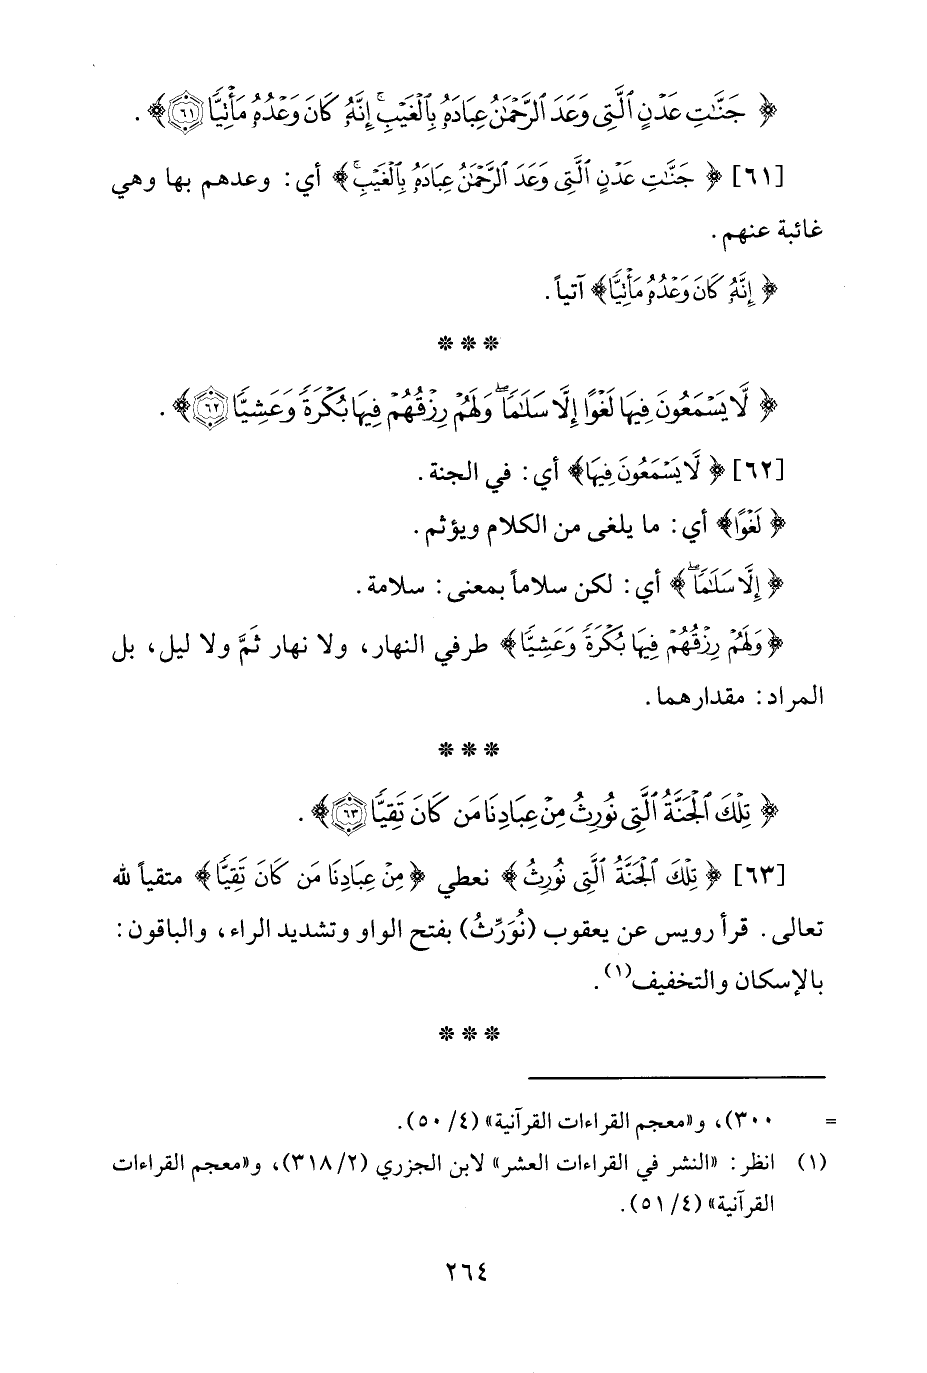 ﴿ جَنَّٰتِ عَدْنٍ ٱلَّتِى وَعَدَ ٱلرَّحْمَٰنُ عِبَادَهُۥ بِٱلْغَيْبِ ۚ إِنَّهُۥ كَانَ وَعْدُهُۥ مَأْتِيًّا ٦١ ﴾ .
[٦١] ﴿ جَنَّٰتِ عَدْنٍ ٱلَّتِى وَعَدَ ٱلرَّحْمَٰنُ عِبَادَهُۥ بِٱلْغَيْبِ ۚ ﴾ أي: وعدهم بها وهي
غائبة عنهم.
﴿ إِنَّهُۥ كَانَ وَعْدُهُۥ مَأْتِيًّا ﴾ آتياً.
***
﴿ لَّا يَسْمَعُونَ فِيهَا لَغْوًا إِلَّا سَلَٰمًا ۖ وَلَهُمْ رِزْقُهُمْ فِيهَا بُكْرَةً وَعَشِيًّا ٦٢ ﴾ .
[٦٢] ﴿ لَّا يَسْمَعُونَ فِيهَا ﴾ أي: في الجنة.
﴿ لَغْوًا ﴾ أي: ما يلغى من الكلام ويؤثم.
﴿ إِلَّا سَلَٰمًا ۖ ﴾ أي: لكن سلاماً بمعنى: سلامة.
﴿ وَلَهُمْ رِزْقُهُمْ فِيهَا بُكْرَةً وَعَشِيًّا ﴾ طرفي النهار، ولا نهار ثَمَّ ولا ليل، بل
المراد: مقدارهما.
***
﴿ تِلْكَ ٱلْجَنَّةُ ٱلَّتِى نُورِثُ مِنْ عِبَادِنَا مَن كَانَ تَقِيًّا ٦٣ ﴾ .
[٦٣] ﴿ تِلْكَ ٱلْجَنَّةُ ٱلَّتِى نُورِثُ ﴾ نعطي ﴿ مِنْ عِبَادِنَا مَن كَانَ تَقِيًّا ﴾ متقياً لله
تعالى. قرأ رويس عن يعقوب (نُوَرِّثُ) بفتح الواو وتشديد الراء، والباقون:
بالإسكان والتخفيف(١).
***
= ٣٠٠)، و«معجم القراءات القرآنية» (٤/ ٥٠).
(١) انظر: «النشر في القراءات العشر» لابن الجزري (٢/ ٣١٨)، و«معجم القراءات
القرآنية» (٤/ ٥١).
٢٦٤